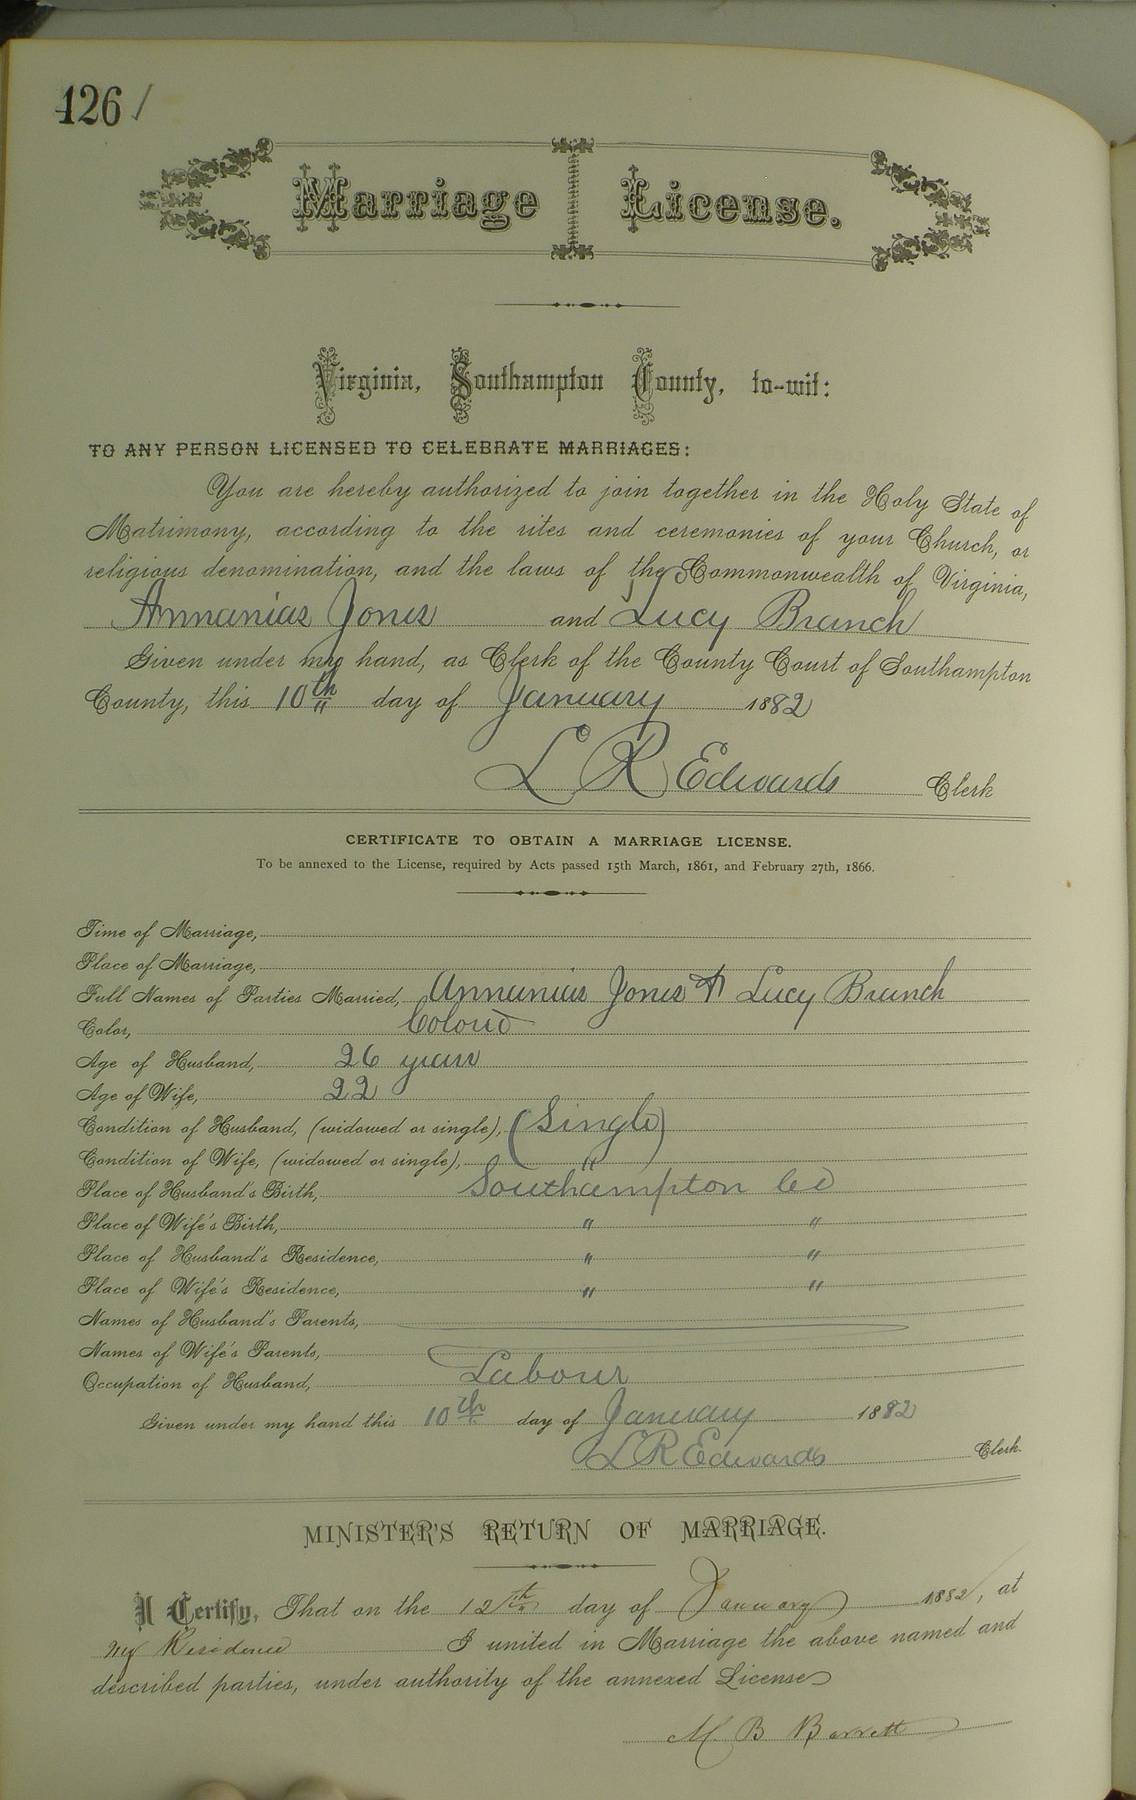 126 /
Marriage License.
Virginia, Southampton County, to-wit:
TO ANY PERSON LICENSED TO CELEBRATE MARRIAGES:
You are hereby authorized to join together in the Holy State of
Matrimony, according to the rites and ceremonies of your Church, or
religious denomination, and the laws of the Commonwealth of Virginia,
Annanias Jones and Lucy Branch
Given under my hand, as Clerk of the County Court of Southampton
County, this 10th day of January 1882
L R Edwards Clerk
CERTIFICATE TO OBTAIN A MARRIAGE LICENSE.
To be annexed to the License, required by Acts passed 15th March, 1861, and February 27th, 1866.
Time of Marriage,
Place of Marriage,
Full Names of Parties Married, Annanias Jones & Lucy Branch
Color, Colored
Age of Husband, 26 years
Age of Wife, 22
Condition of Husband, (widowed or single), (Single)
Condition of Wife, (widowed or single), "
Place of Husband's Birth, Southampton Co
Place of Wife's Birth, " "
Place of Husband's Residence, " "
Place of Wife's Residence, " "
Names of Husband's Parents,
Names of Wife's Parents,
Occupation of Husband, Labour
Given under my hand this 10th day of January 1882
L R Edwards Clerk.
MINISTER'S RETURN OF MARRIAGE.
I Certify, That on the 12th day of January 1882, at
My Residence I united in Marriage the above named and
described parties, under authority of the annexed License
M. B Barrett